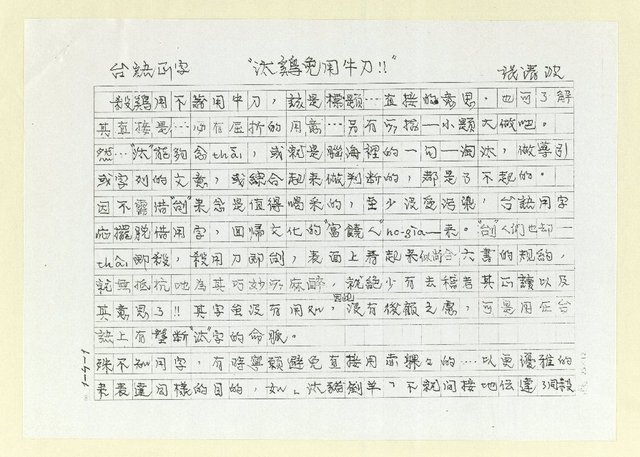 台語正字 "汰鷄免用牛刀!!"
殺鷄用不着用牛刀，該是標題…直接的意思。也可了解
其直接是…必有屈折的用意…另有所指—小題大做吧。
然…"汰"能夠念thâi，或就是腦海裡的一句—淘汰，做導引
或字列的文意，或綜合起來做判斷的，都是了不起的。
因不需借"刣"來念是值得喝采的，至少沒受污染，台語用字
應擺脫借用字，回歸文化的"富饒人"—來。"刣"人們也却一
thâi即殺，殺用刀即刣，表面上看起來似符合六書的規約，
就無抵抗地為其巧妙所麻醉，就絕少有去稽考其正讀以及
其意思了!!其字虽沒有用如，沒有後顧之慮，可是用在台
語上有壟斷"汰"字的命脈。
殊不知用字，有時寧願避免直接用赤裸々的…以更優雅的
來表達同樣的目的，如、汰豬刣羊，不就间接地伝達了殺
1-4-1